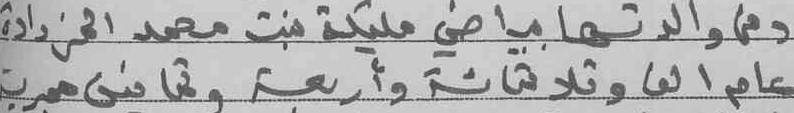 ومن والدتها بياضي مليكة بنت محمد المزدادة
عام الف وثلاثمائة وأربعة وثمانين هجرية